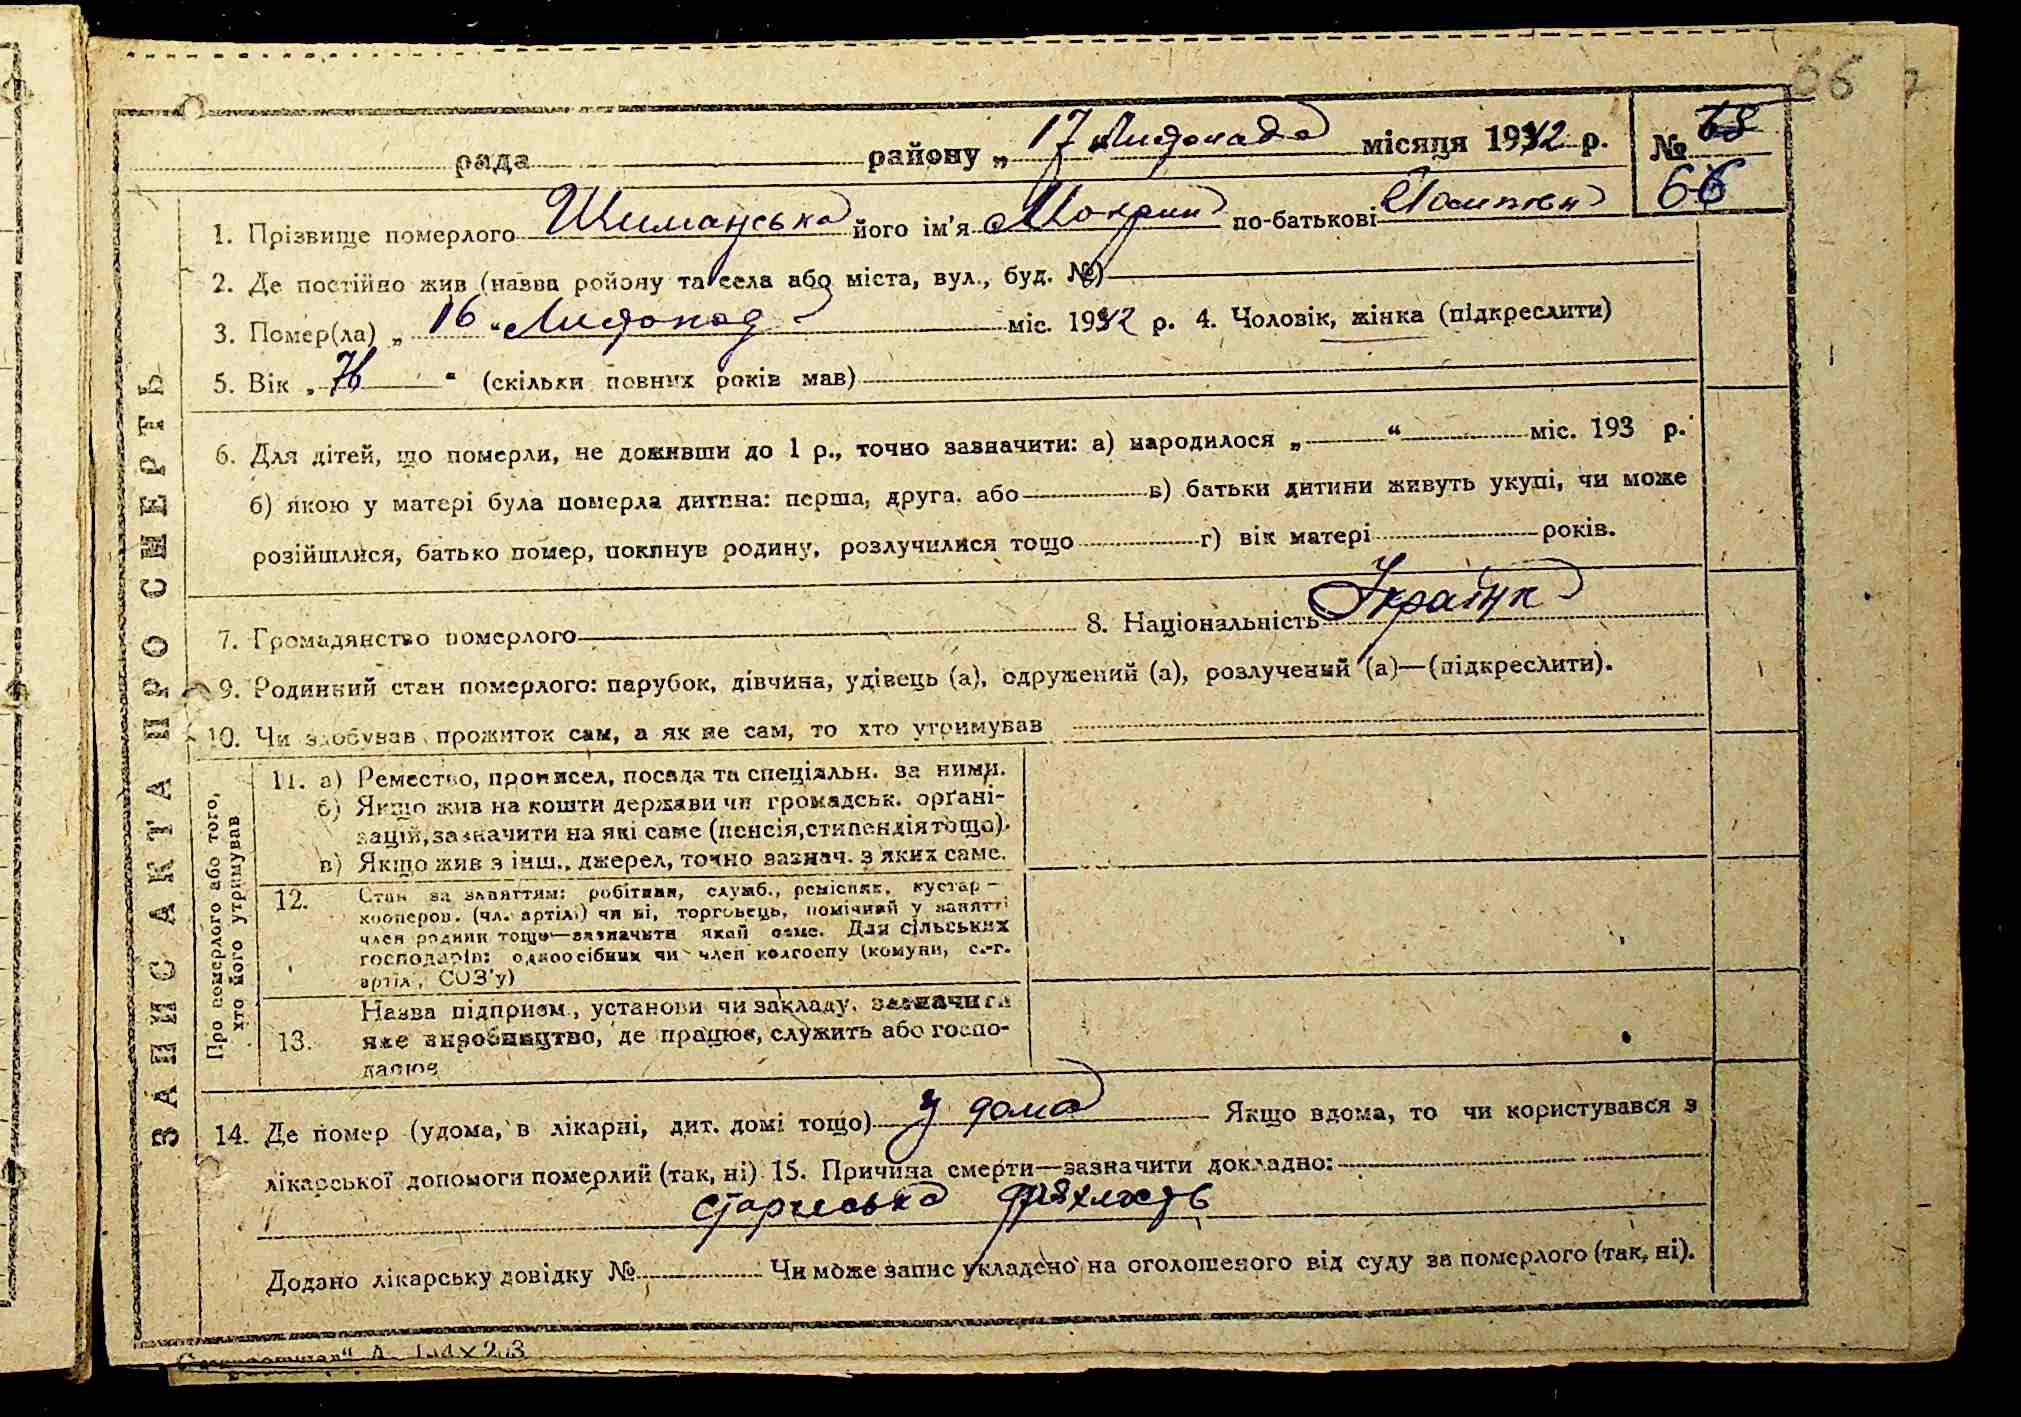 66
рада районy „ 17 " Листопада місяця 1942 р. № 68
66
1. Прізвище померлого Шиманська його ім'я Мокрин по-батькові
2. Де постійно жив (назва ройону та села або міста, вул., буд. №)
3. Помер(ла) „ 16 " Листопад міс. 1942 р. 4. Чоловік, жінка (підкреслити)
5. Вік „ 76 " (скільки повних років мав)
6. Для дітей, що померли, не доживши до 1 р., точно зазначити: а) народилося „ " міс. 193 р.
б) якою у матері була померла дитина: перша, друга, або в) батьки дитини живуть укупі, чи може
розійшлися, батько помер, покинув родину, розлучилися тощо г) вік матері років.
7. Громадянство померлого 8. Національність Україн
9. Родинний стан померлого: парубок, дівчина, удівець (а), одружений (а), розлучений (а)—(підкреслити).
10. Чи здобував прожиток сам, а як не сам, то хто утримував
ЗАПИС АКТА ПРО СМЕРТЬ
Про померлого або того,
хто його утримував
11. а) Ремество, промисел, посада та спеціяльн. за ними.
б) Якщо жив на кошти держави чи громадськ. орґані-
зацій, зазначити на які саме (пенсія, стипендія тощо).
в) Якщо жив з інш., джерел, точно зазнач. з яких саме.
12. Стан за заняттям: робітник, служб., ремісник, кустар –
кооперов. (чл. артілі) чи ні, торговець, помічний у занятті
член родини тощо—зазначити який саме. Для сільських
господарів: одноосібник чи член колгоспу (комуни, с.-г.
артіл., СОЗ'у)
13. Назва підприєм., установи чи закладу, зазначити
яке виробництво, де працює, служить або госпо-
дарює
14. Де помер (удома, в лікарні, дит. домі тощо) у дома Якщо вдома, то чи користувався з
лікарської допомоги померлий (так, ні) 15. Причина смерти—зазначити докладно:
старческа дряхлость
Додано лікарську довідку № Чи може запис укладено на оголошеного від суду за померлого (так, ні).